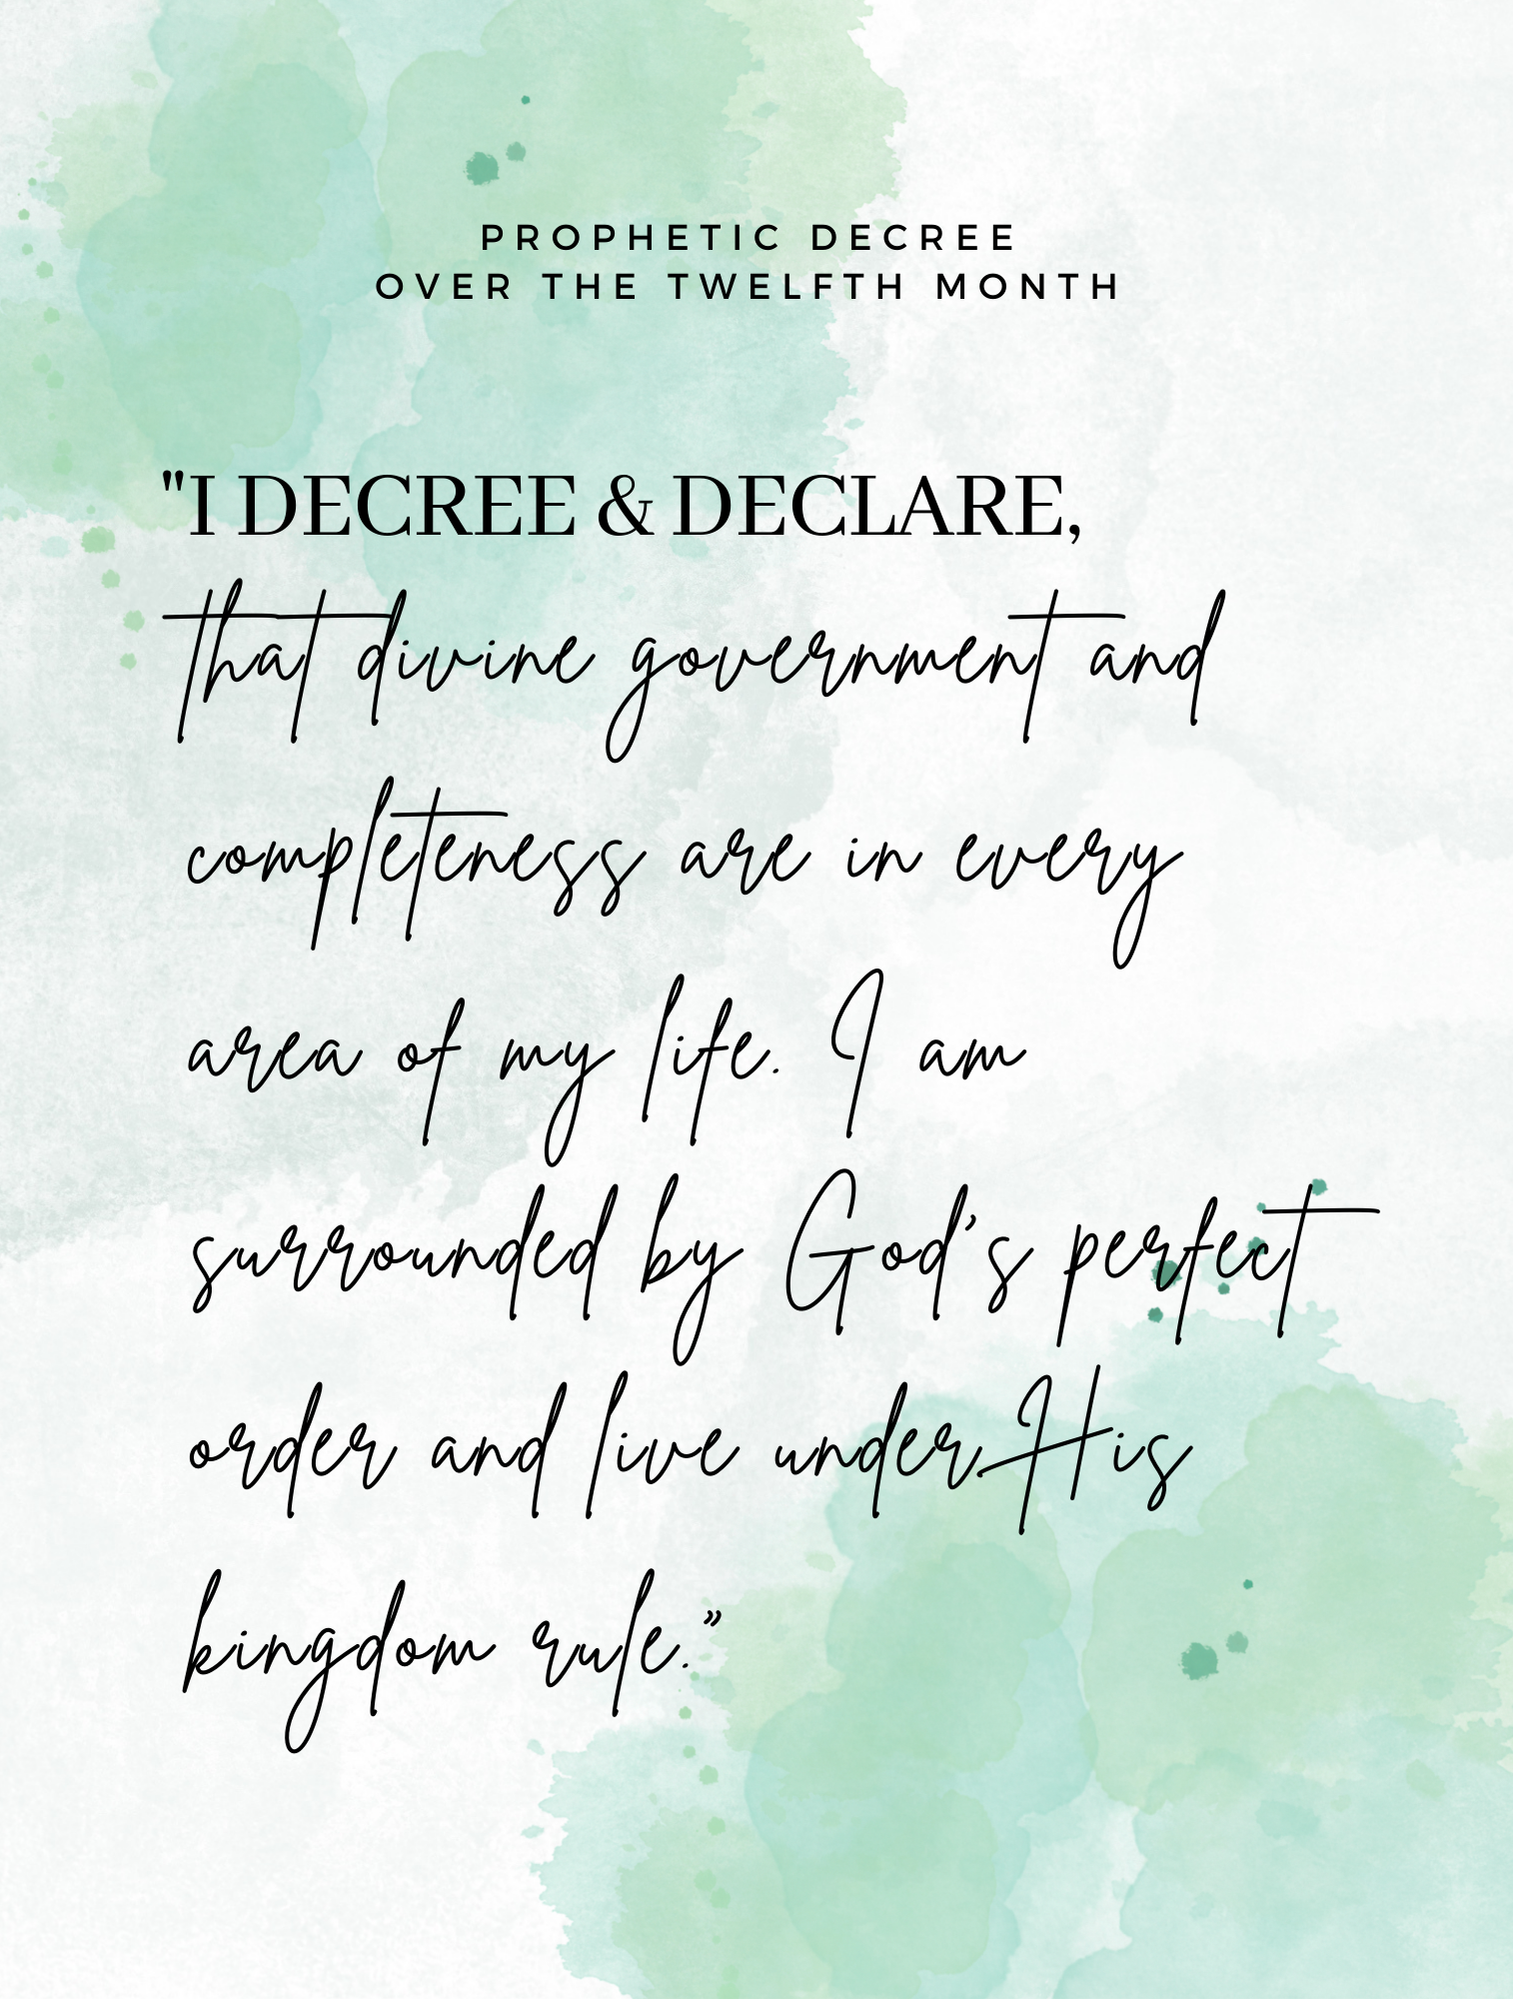 PROPHETIC DECREE
OVER THE TWELFTH MONTH
"I DECREE & DECLARE,
that divine government and
completeness are in every
area of my life. I am
surrounded by God's perfect
order and live under His
kingdom rule.”